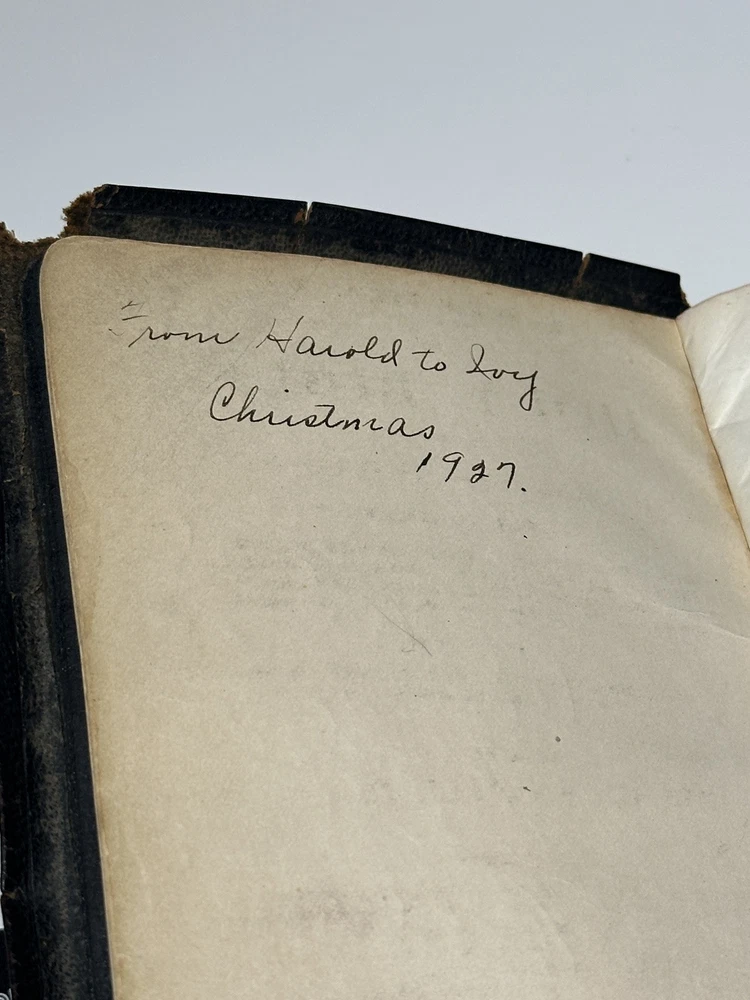 From Harold to Ivy
Christmas
1927.